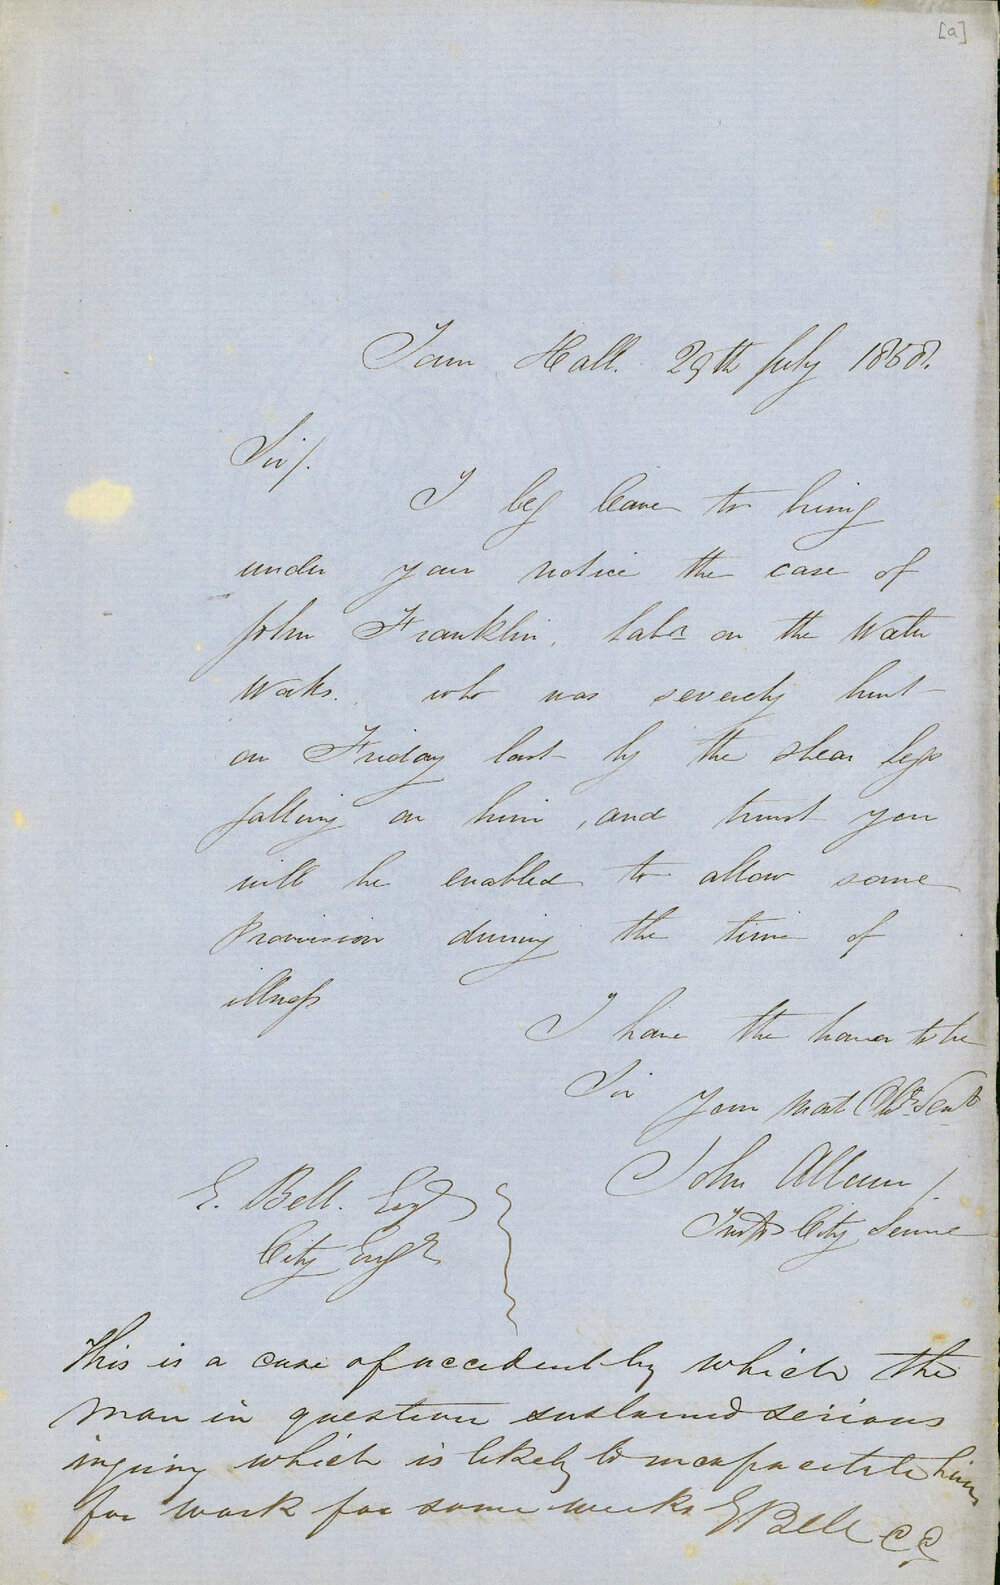 [a]
Town Hall. 29th July 1858.
Sir/.
I beg leave to bring
under your notice the case of
John Franklin, Labr on the Water
Works. who was severely hurt
on Friday last by the shear legs
falling on him, and trust you
will be enabled to allow some
Provision during the time of
illness
I have the honor to be
Sir
Your most Obt Servt
John Allan /.
City
E. Bell. Esqr
City Engr
This is a case of accident by which the
man in question sustained serious
injury which is likely to incapacitate him
for work for some weeks E Bell C E